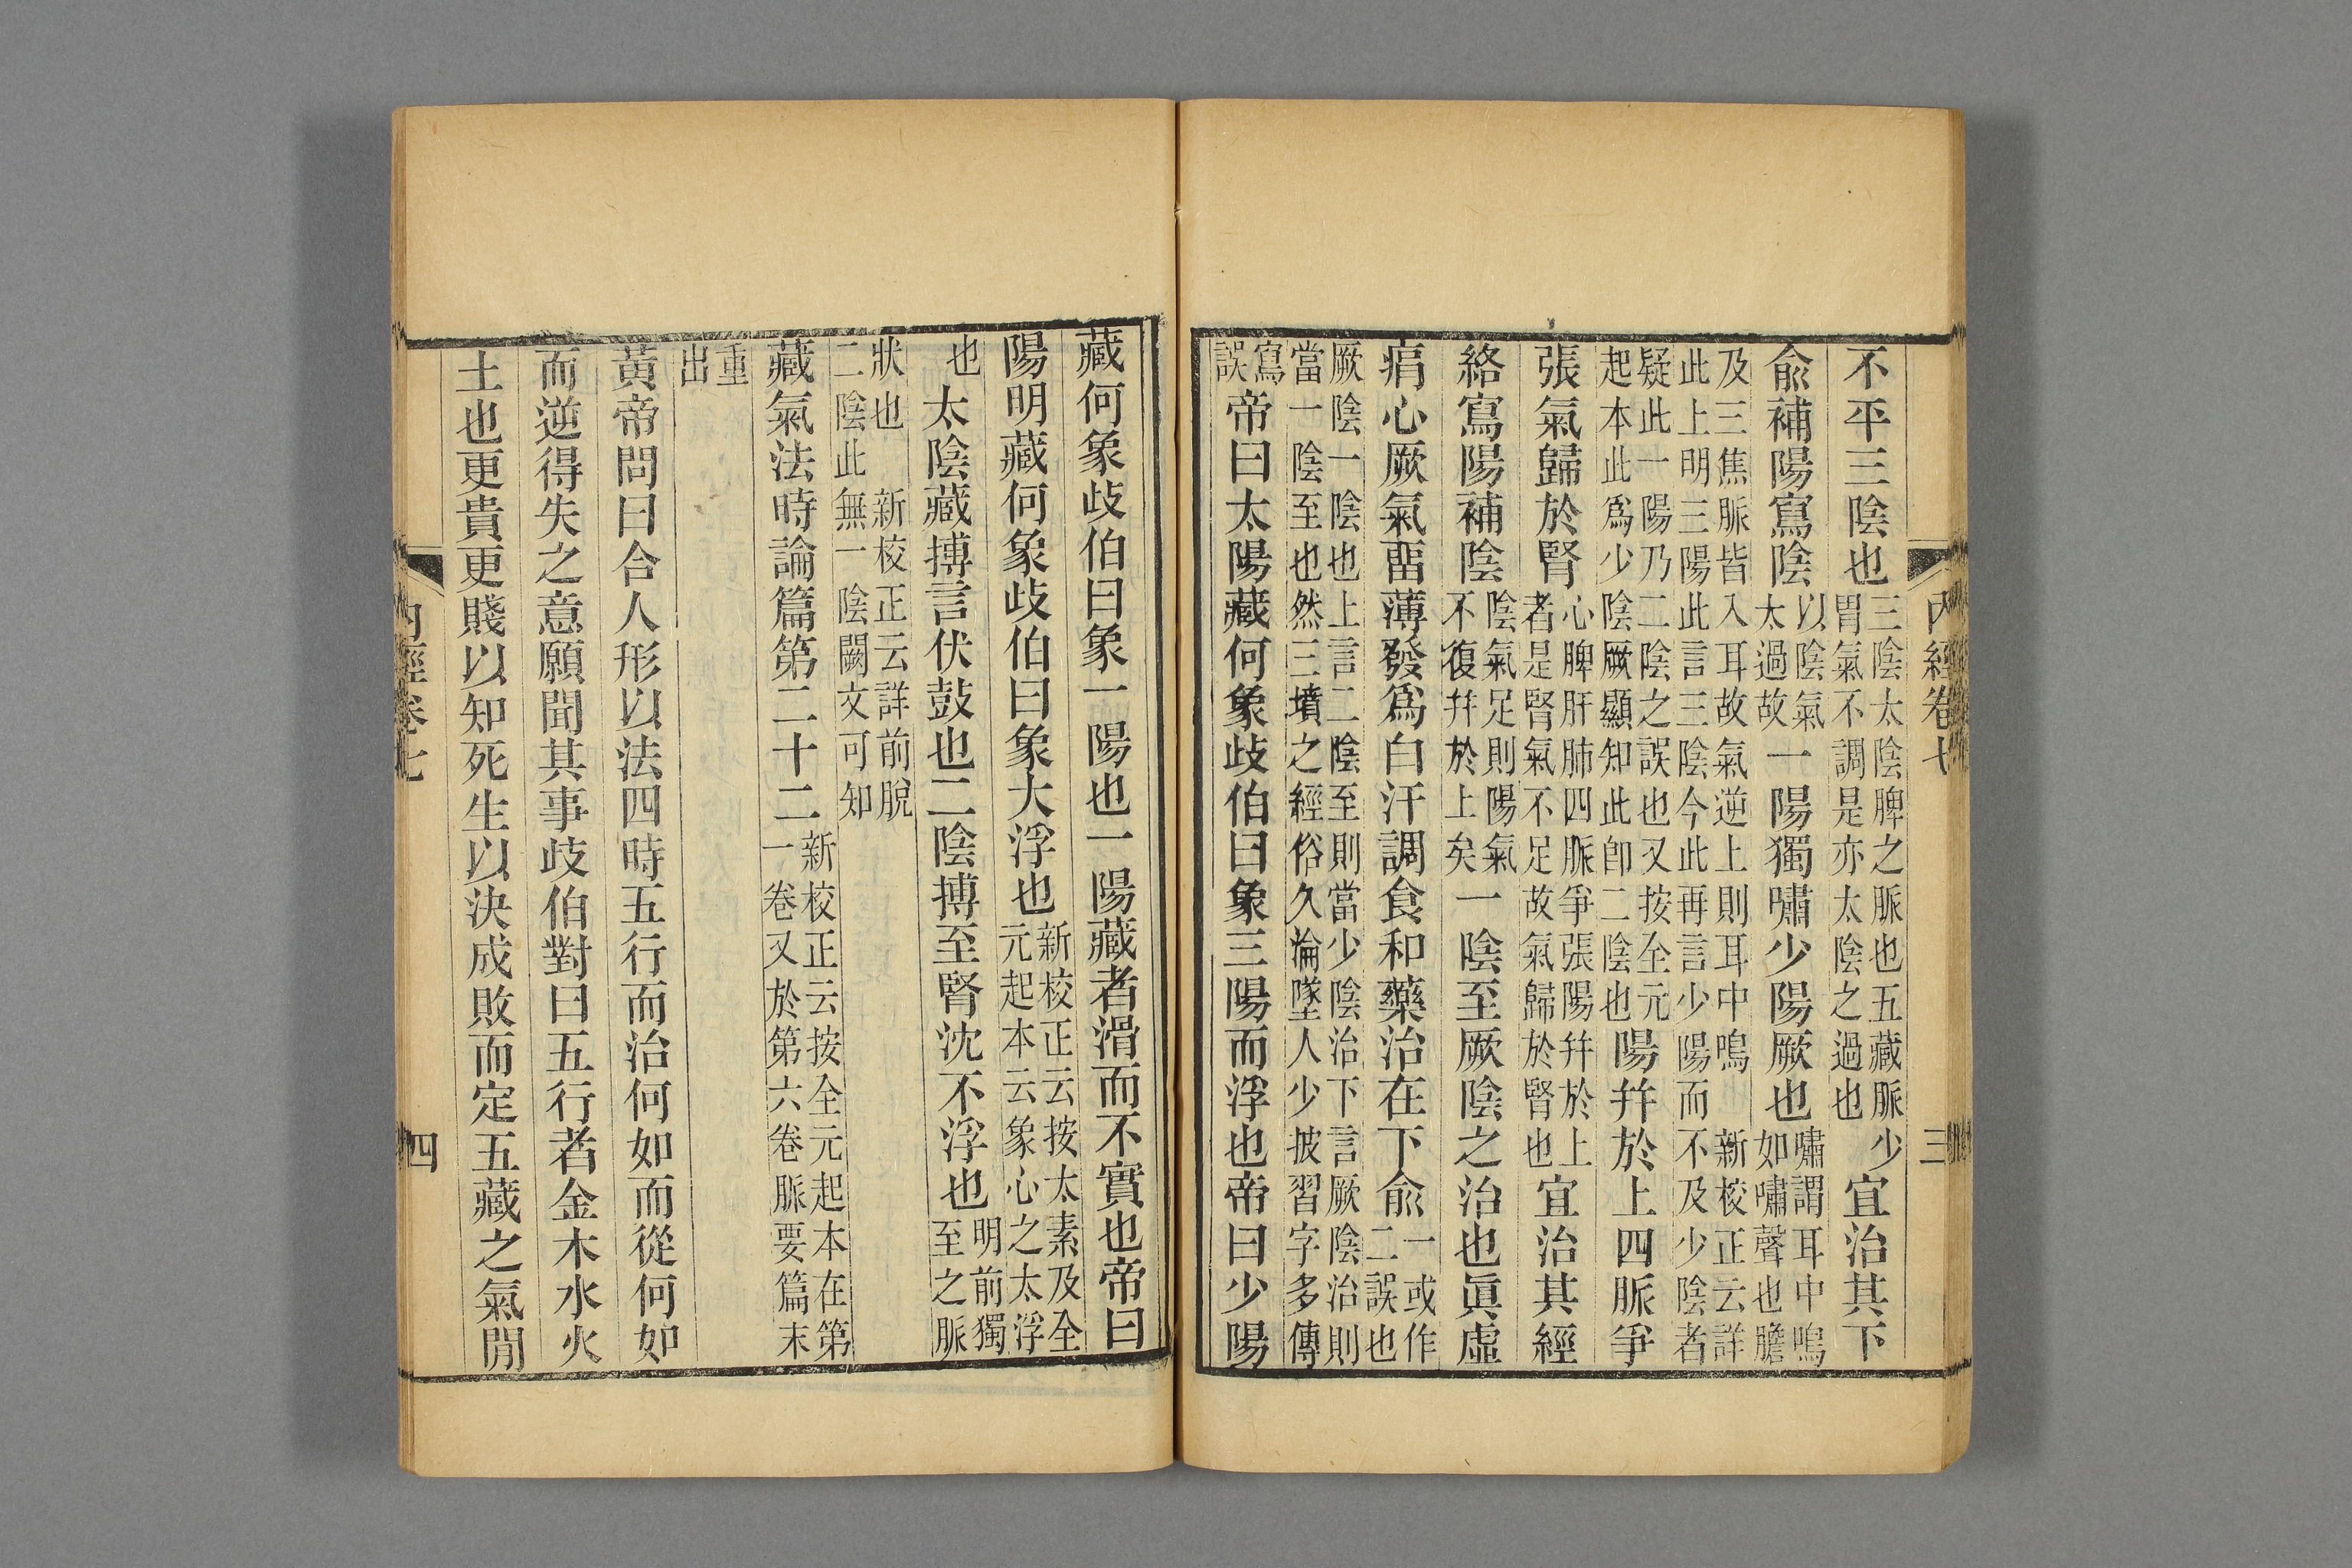 內經卷七 三
不平三陰也三陰太陰脾之脈也五藏脈少胃氣不調是亦太陰之過也宜治其下
俞補陽寫陰以陰氣太過故一陽獨嘯少陽厥也嘯謂耳中鳴如嘯聲也膽
及三焦脈皆入耳故氣逆上則耳中鳴 新校正云詳此上明三陽此言三陰今此再言少陽而不及少陰者
疑此一陽乃二陰之誤也又按全元起本此爲少陰厥顯知此卽二陰也陽幷於上四脈爭
張氣歸於腎心脾肝肺四脈爭張陽幷於上者是腎氣不足故氣歸於腎也宜治其經
絡寫陽補陰陰氣足則陽氣不復幷於上矣一陰至厥陰之治也眞虛
痟心厥氣畱薄發爲白汗調食和藥治在下俞一或作二誤也
厥陰一陰也上言二陰至則當少陰治下言厥陰治則當一陰至也然三墳之經俗久淪墜人少披習字多傳
寫誤帝曰太陽藏何象歧伯曰象三陽而浮也帝曰少陽
藏何象歧伯曰象一陽也一陽藏者滑而不實也帝曰
陽明藏何象歧伯曰象大浮也新校正云按太素及全元起本云象心之太浮
也太陰藏搏言伏鼓也二陰搏至腎沈不浮也明前獨至之脈
狀也 新校正云詳前脫二陰此無一陰闕文可知
藏氣法時論篇第二十二新校正云按全元起本在第一卷又於第六卷脈要篇末
重出
黃帝問曰合人形以法四時五行而治何如而從何如
而逆得失之意願聞其事歧伯對曰五行者金木水火
土也更貴更賤以知死生以決成敗而定五藏之氣閒
內經卷七 四